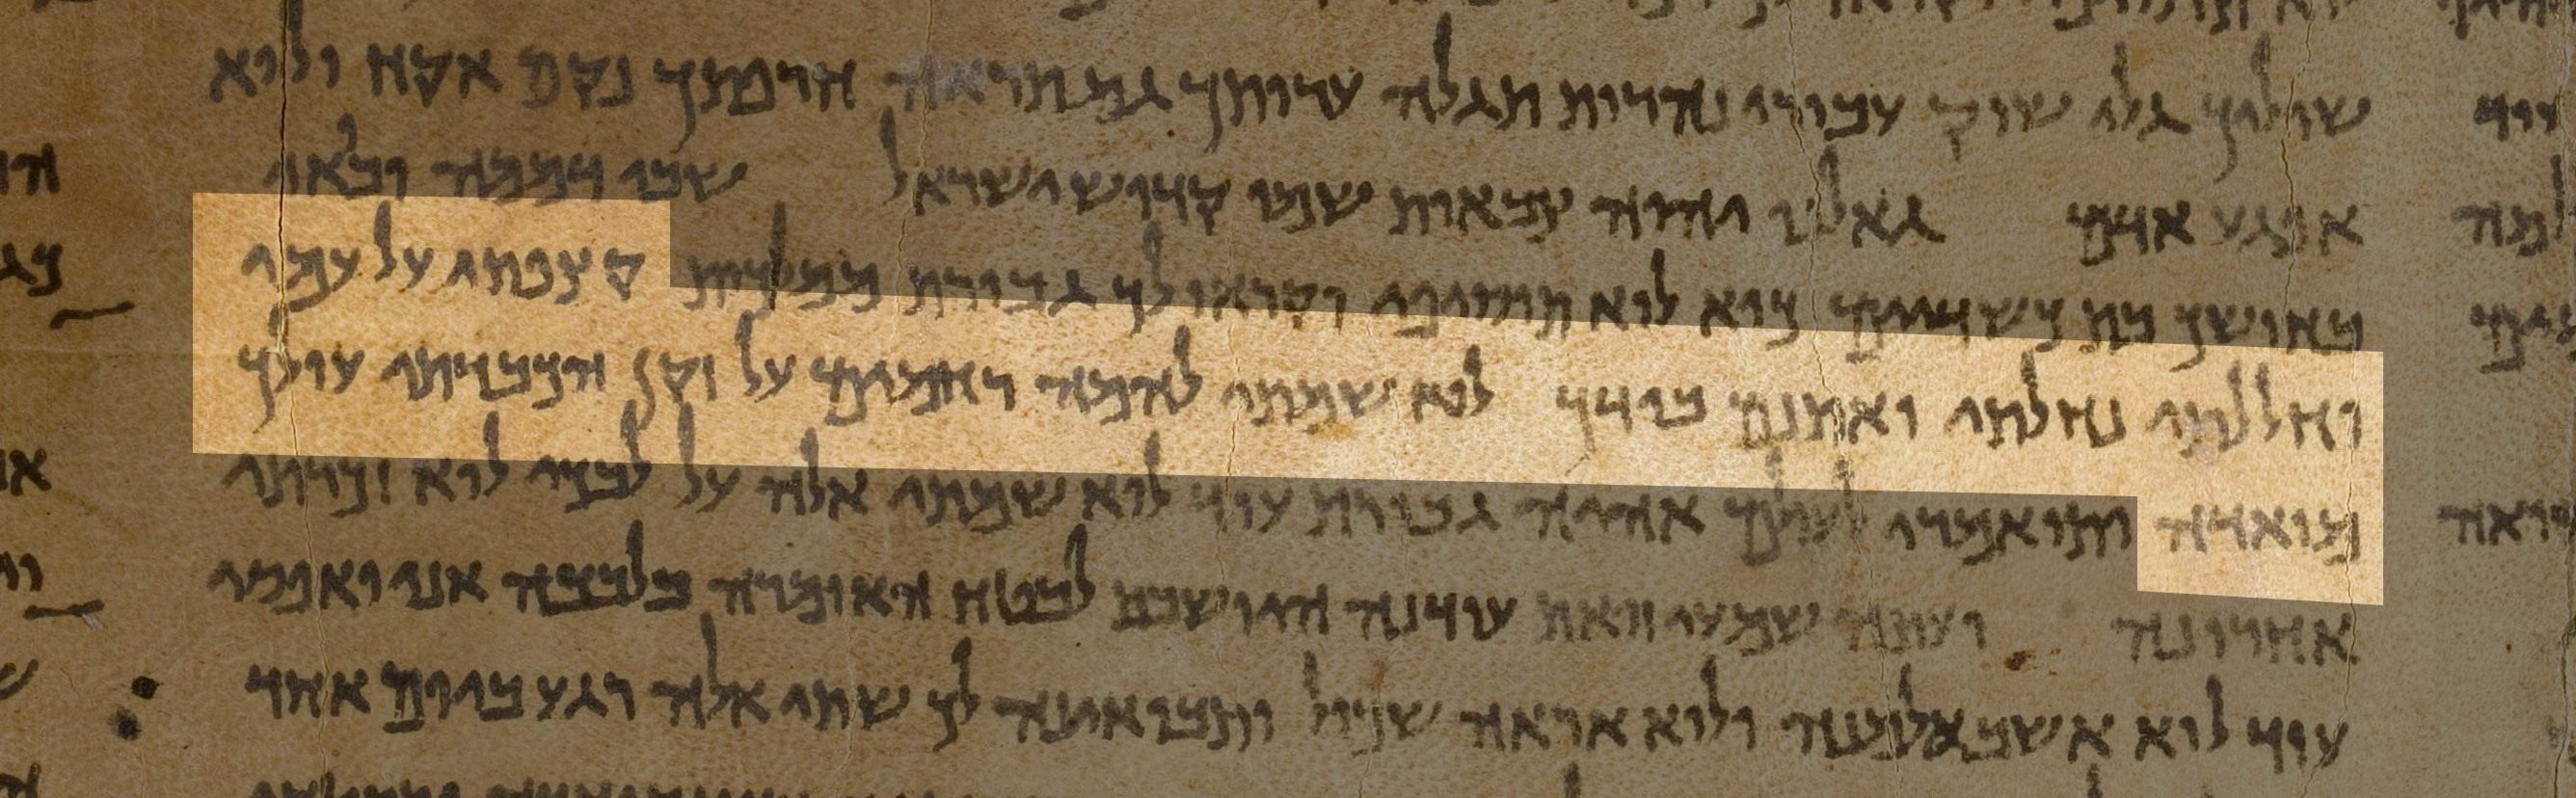 שוליך גלי שוק עבורי נהרות תגלה ערותך גם תראה חרפתך נקם אקח ולוא
אפגע אדם גאלנו יהוה צבאות שמו קדוש ישראל שבי דממה ובאי
בחושך בת כשדיים כיא לוא תוסיפי יקראו לך גבורת ממלכות קצפתי על עמי
וחללתי נחלתי ואתנם בידך לוא שמתי להמה רחמים על זקן הכבדתי עולך
מואדה ותואמרי לעולם אהיה גבורת עוד לוא שמתי אלה על לבכי לוא זכרתי
אחרונה ועתה שמעי זואת עדינה היושבת לבטח האומרה בלבבה אני ואפסי
עוד לוא אשב אלמנה ולוא אראה שכול ותבואינה לך שתי אלה רגע ביום אחד